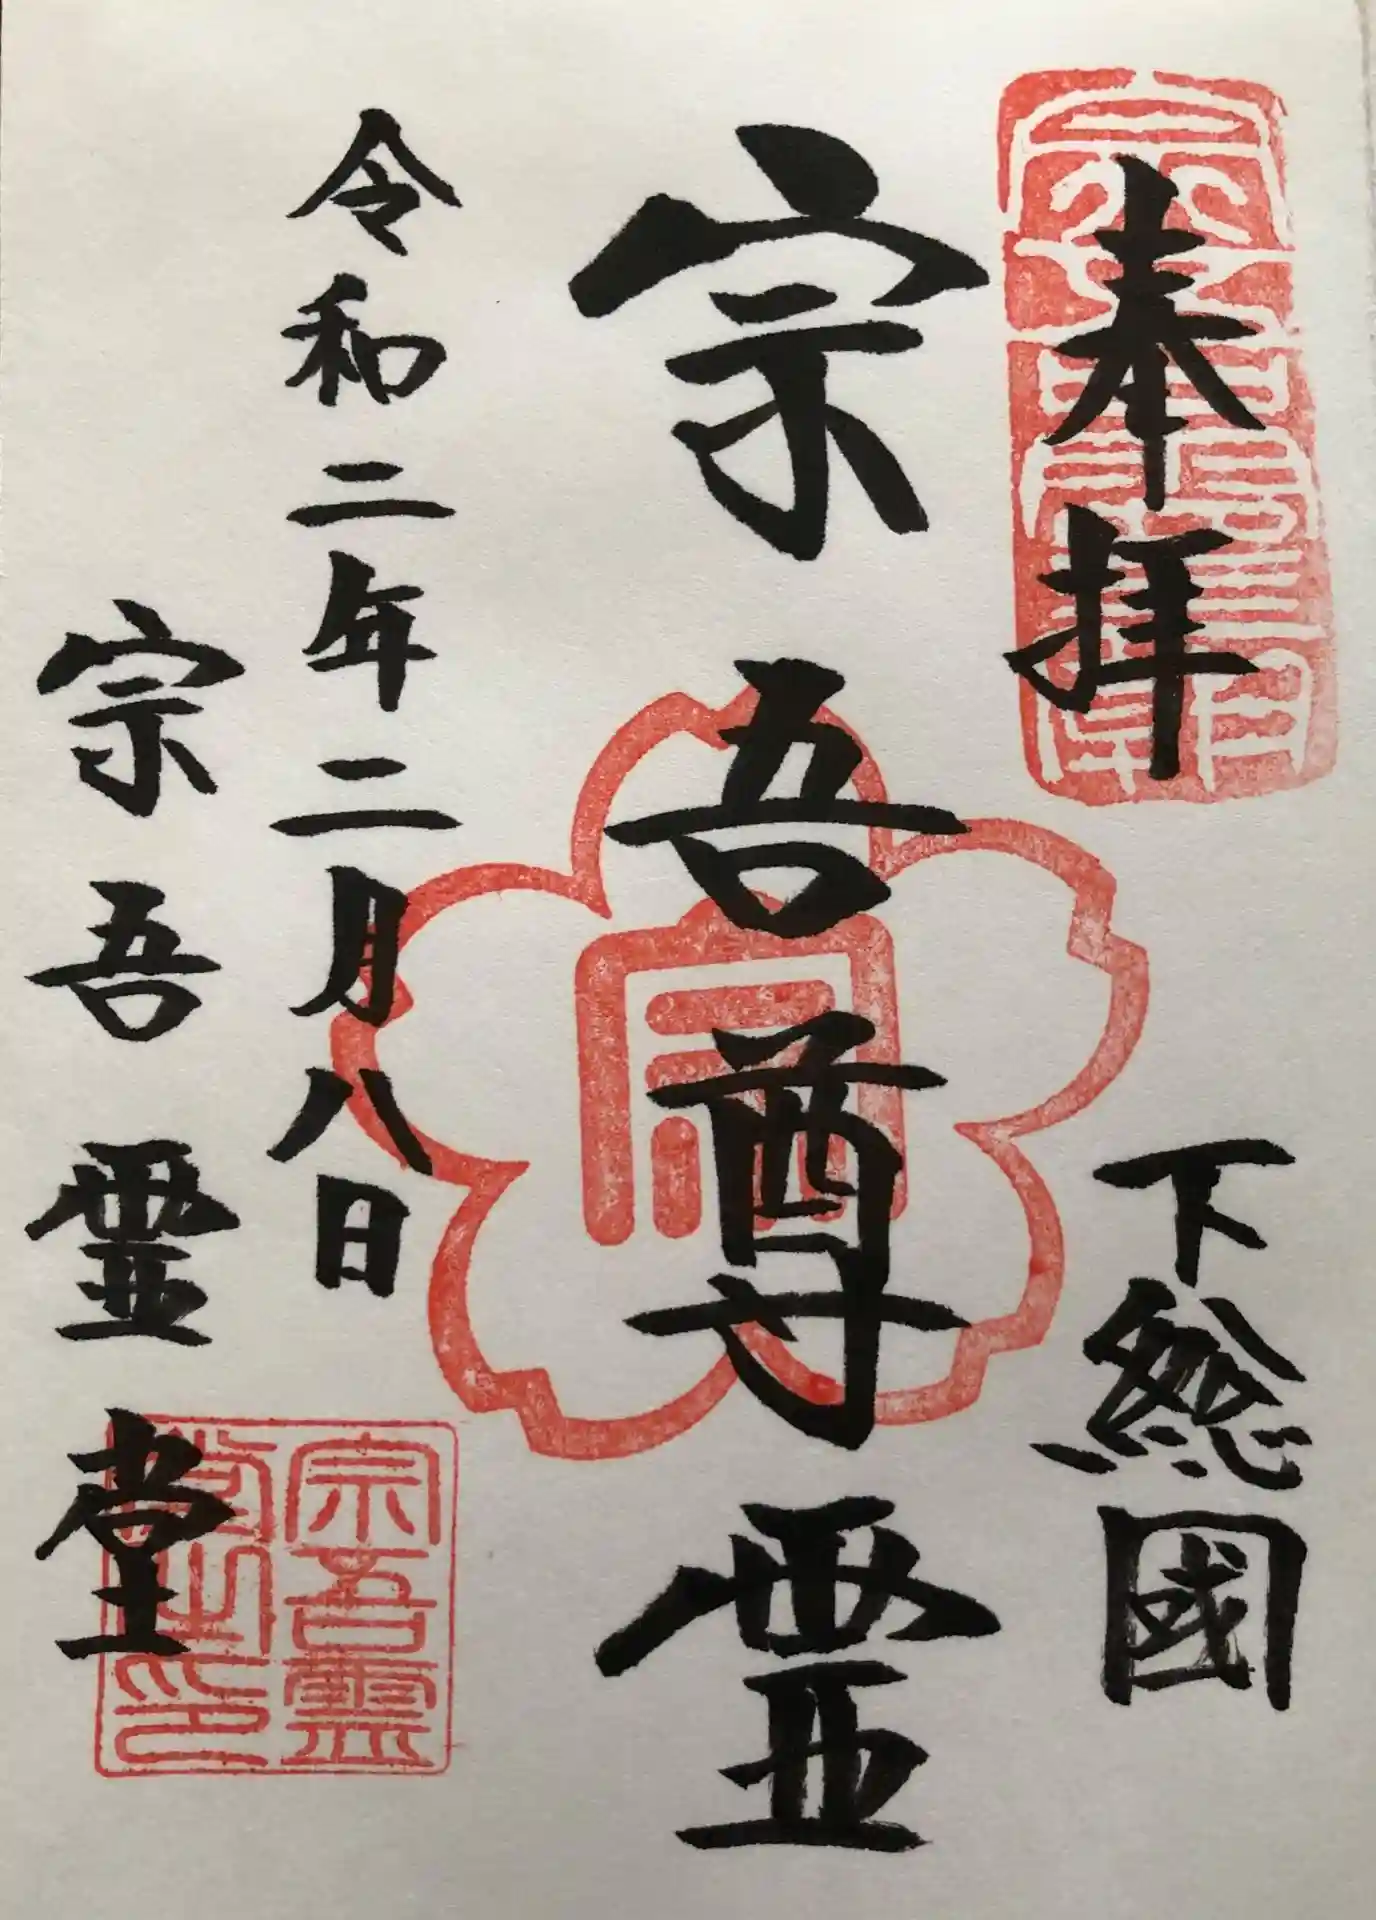 奉拝
下総國
宗吾尊霊
令和二年二月八日
宗吾霊堂
宗吾霊
堂之印